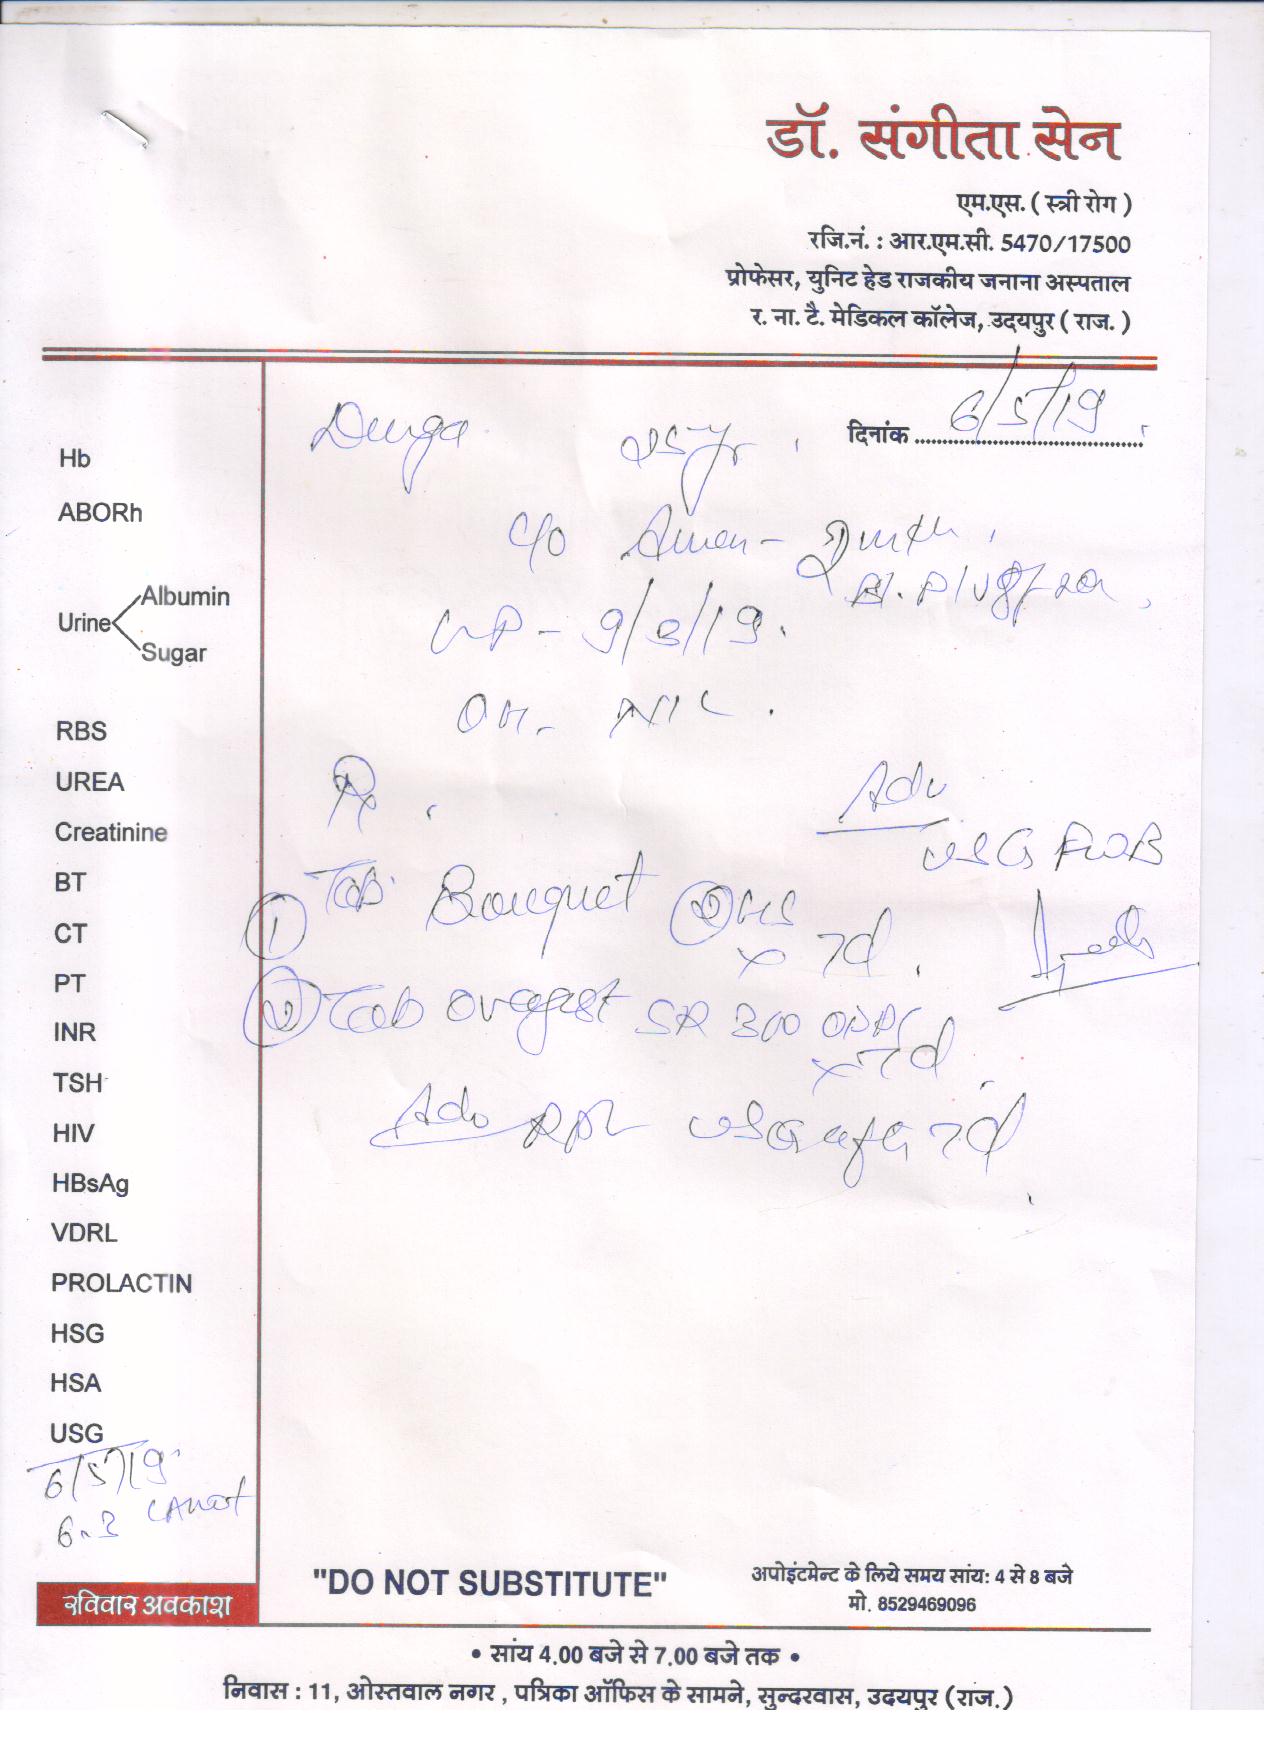 डॉ. संगीता सेन
एम.एस. ( स्त्री रोग )
रजि.नं. : आर.एम.सी. 5470/17500
प्रोफेसर, युनिट हेड राजकीय जनाना अस्पताल
र. ना. टै. मेडिकल कॉलेज, उदयपुर ( राज. )
Durga 25 yr दिनांक 6/5/19
C/O Amen-
LMP - 9/3/19.
OH - NIL.
Rx
Adv
USG FWB
① Tab. Bouquet
x 7d.
② Tab SR 300
x 7d
Adv USG after 7d
Hb
ABORh
Urine
Albumin
Sugar
RBS
UREA
Creatinine
BT
CT
PT
INR
TSH
HIV
HBsAg
VDRL
PROLACTIN
HSG
HSA
USG
6/5/19
रविवार अवकाश
"DO NOT SUBSTITUTE"
अपोइंटमेन्ट के लिये समय सांय: 4 से 8 बजे
मो. 8529469096
• सांय 4.00 बजे से 7.00 बजे तक •
निवास : 11, ओस्तवाल नगर , पत्रिका ऑफिस के सामने, सुन्दरवास, उदयपुर (राज.)